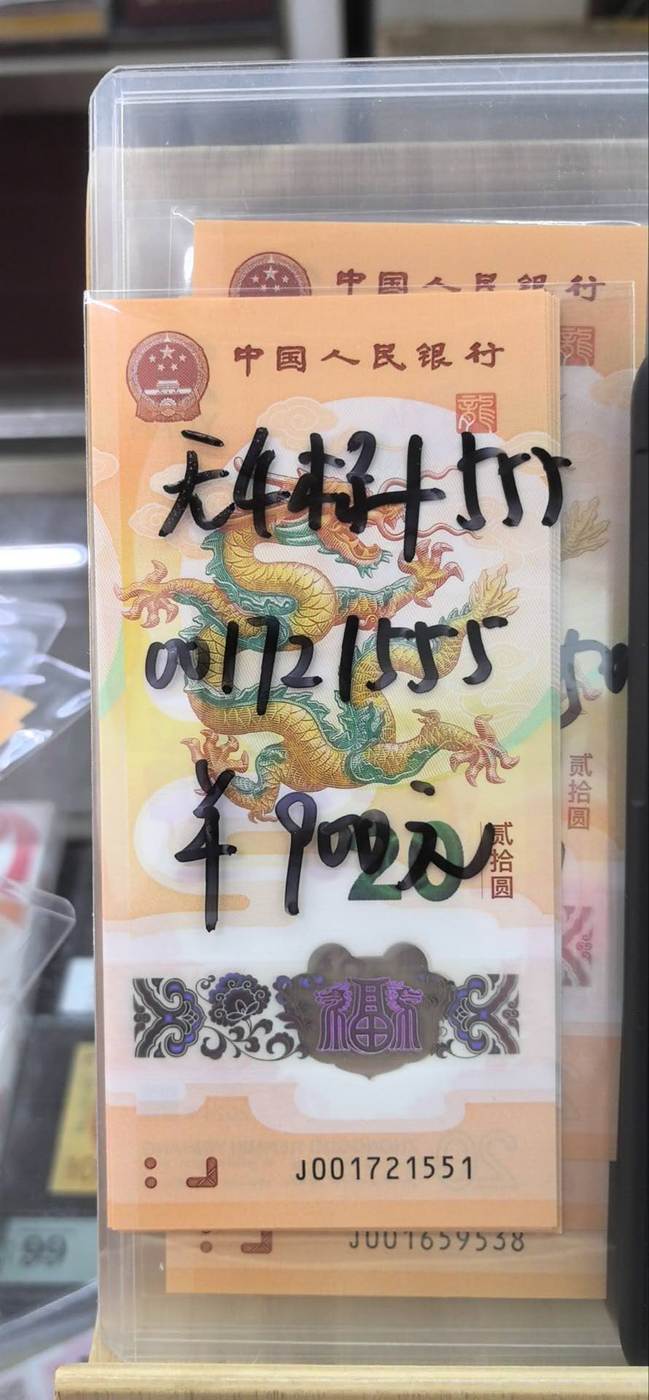 中国人民银行
中国人民银行
龍
无4标十555
001721555
¥900元
20
贰拾圆
贰拾圆
福
J001721551
J001659538
99